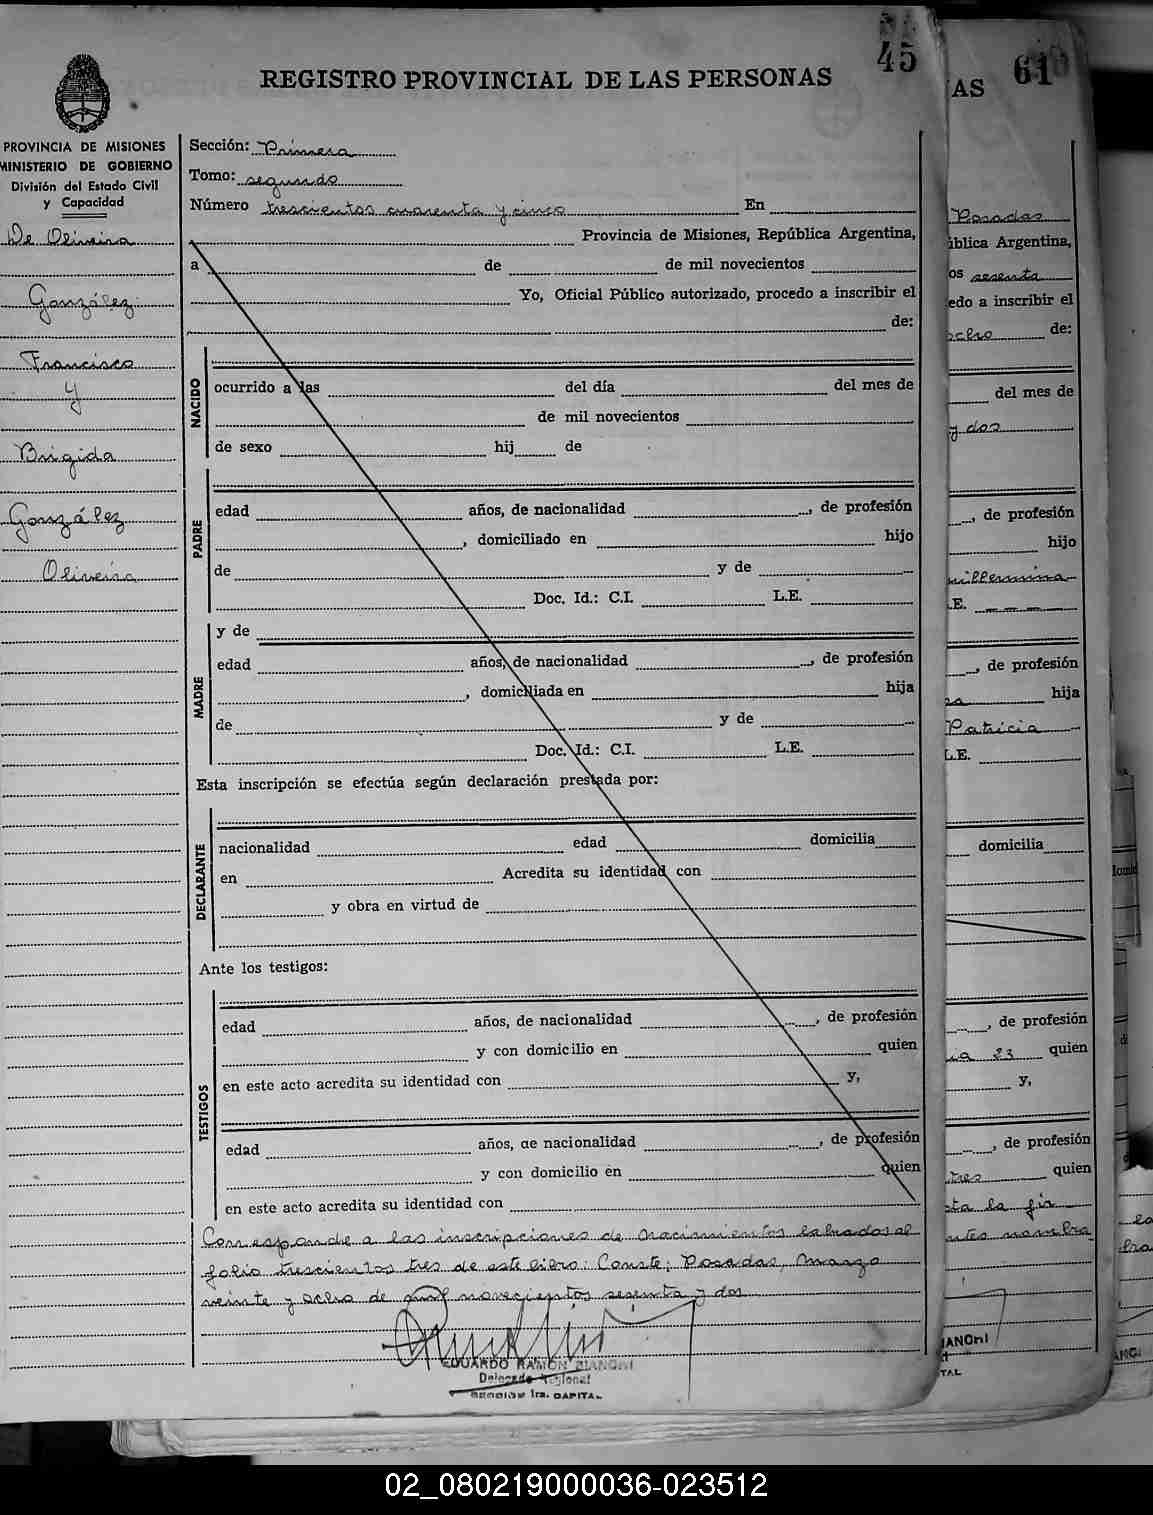 45
REGISTRO PROVINCIAL DE LAS PERSONAS
PROVINCIA DE MISIONES
MINISTERIO DE GOBIERNO
División del Estado Civil
y Capacidad
De Oliveira
González
Francisco
y
Brigida
González
Oliveira
Sección: Primera
Tomo: segundo
Número trescientos cuarenta y cinco En
Provincia de Misiones, República Argentina,
a de de mil novecientos
Yo, Oficial Público autorizado, procedo a inscribir el
de:
NACIDO
ocurrido a las del día del mes de
de mil novecientos
de sexo hij de
PADRE
edad años, de nacionalidad , de profesión
, domiciliado en hijo
de y de
Doc. Id.: C.I. L.E.
MADRE
y de
edad años, de nacionalidad , de profesión
, domiciliada en hija
de y de
Doc. Id.: C.I. L.E.
Esta inscripción se efectúa según declaración prestada por:
DECLARANTE
nacionalidad edad domicilia
en Acredita su identidad con
y obra en virtud de
Ante los testigos:
TESTIGOS
edad años, de nacionalidad , de profesión
y con domicilio en quien
en este acto acredita su identidad con y,
edad años, de nacionalidad , de profesión
y con domicilio en quien
en este acto acredita su identidad con
Corresponde a las inscripciones de nacimientos labrados al
folio trescientos tres de este libro: Conste: Posadas, Marzo
veinte y ocho de mil novecientos sesenta y dos
EDUARDO RAMON BIANGNI
Delegado Regional
SECCION 1ra. CAPITAL
61
AS
Posadas
ública Argentina,
os sesenta
edo a inscribir el
ocho de:
del mes de
y dos
, de profesión
hijo
uillermina
.E.
, de profesión
hija
Patricia
L.E.
domicilia
, de profesión
ia 23 quien
y,
, de profesión
tres quien
sta la fir
ntes nombra
IANGnI
TAL
02_080219000036-023512